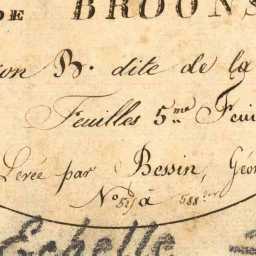 DE BROONS
ion B. dite de la
Feuilles 5.me Feui
Levée par Bessin, Géo
N.° 51 à 588
Echelle